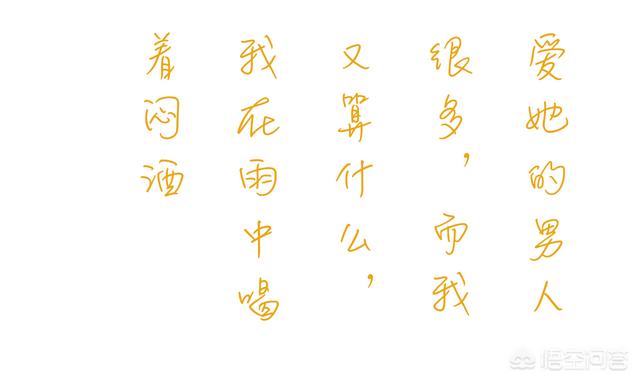 爱她的男人
很多，而我
又算什么，
我在雨中喝
着闷酒
悟空问答